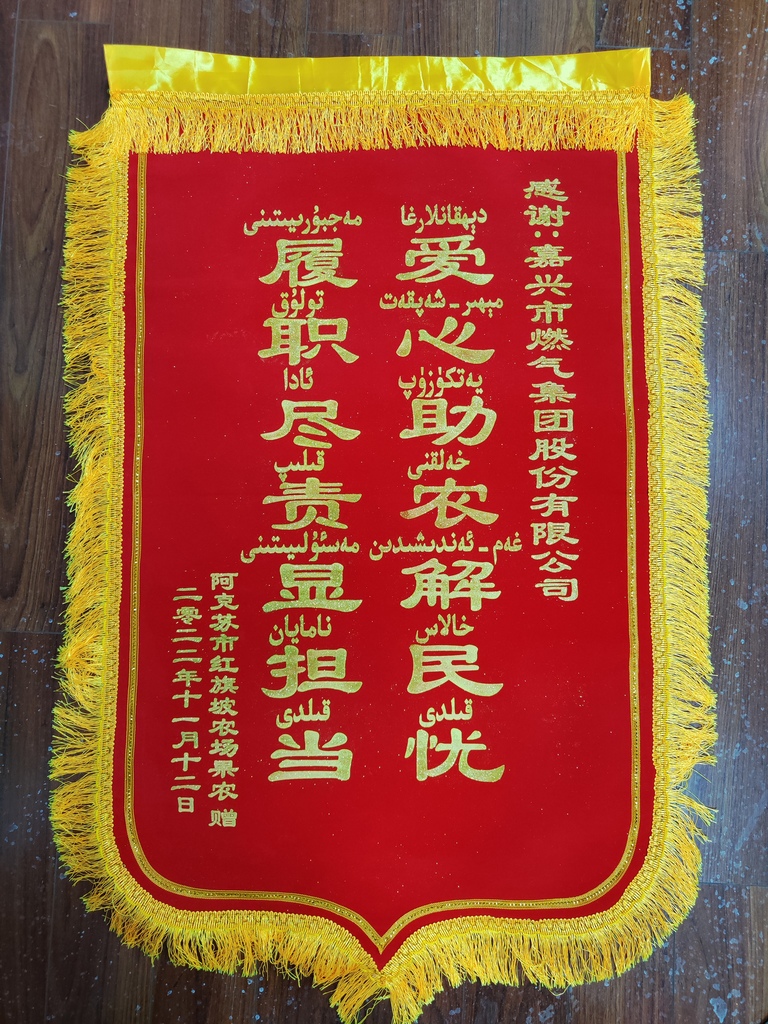 感谢:嘉兴市燃气集团股份有限公司
爱心助农解民忧
دېھقانلارغا
مېھىر-شەپقەت
يەتكۈزۈپ
خەلقنى
غەم-ئەندىشىدىن
خالاس
قىلدى
履职尽责显担当
مەجبۇرىيىتىنى
تولۇق
ئادا
قىلىپ
مەسئۇلىيىتىنى
نامايان
قىلدى
阿克苏市红旗坡农场果农赠
二零二二年十一月十二日